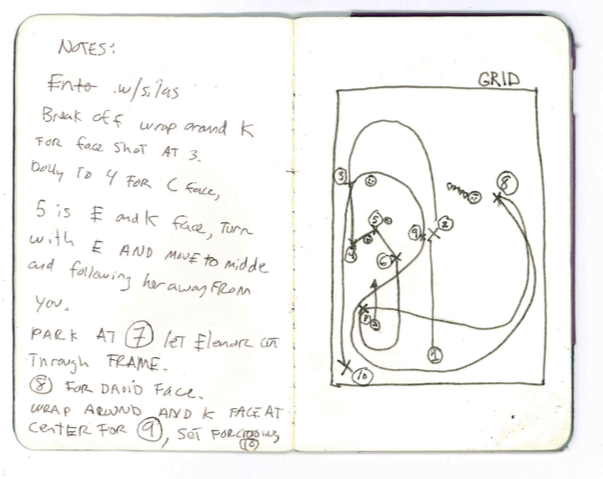 NOTES:
Ento w/silas
Break off wrap around K
FOR face SHOT AT 3.
Dolly TO 4 FOR C face,
5 is E and K face, Turn
with E AND MOVE to midde
and following her away FROM
you.
PARK AT 7 let Elenork cut
Through FRAME.
8 FOR DAVID FACE.
WRAP AROUND AND K FACE AT
CENTER FOR 9, SET FOR
10
GRID
3
8
5
9
2
4
6
7
1
10